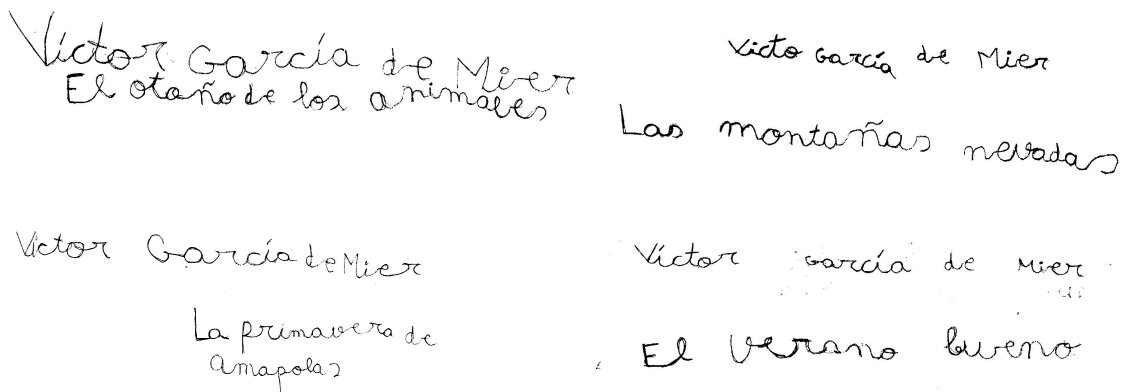 Víctor García de Mier
El otaño de los animales
Victo García de Mier
Las montañas nevadas
Víctor García de Mier
La primavera de
amapolas
Víctor García de Mier
El verano bueno